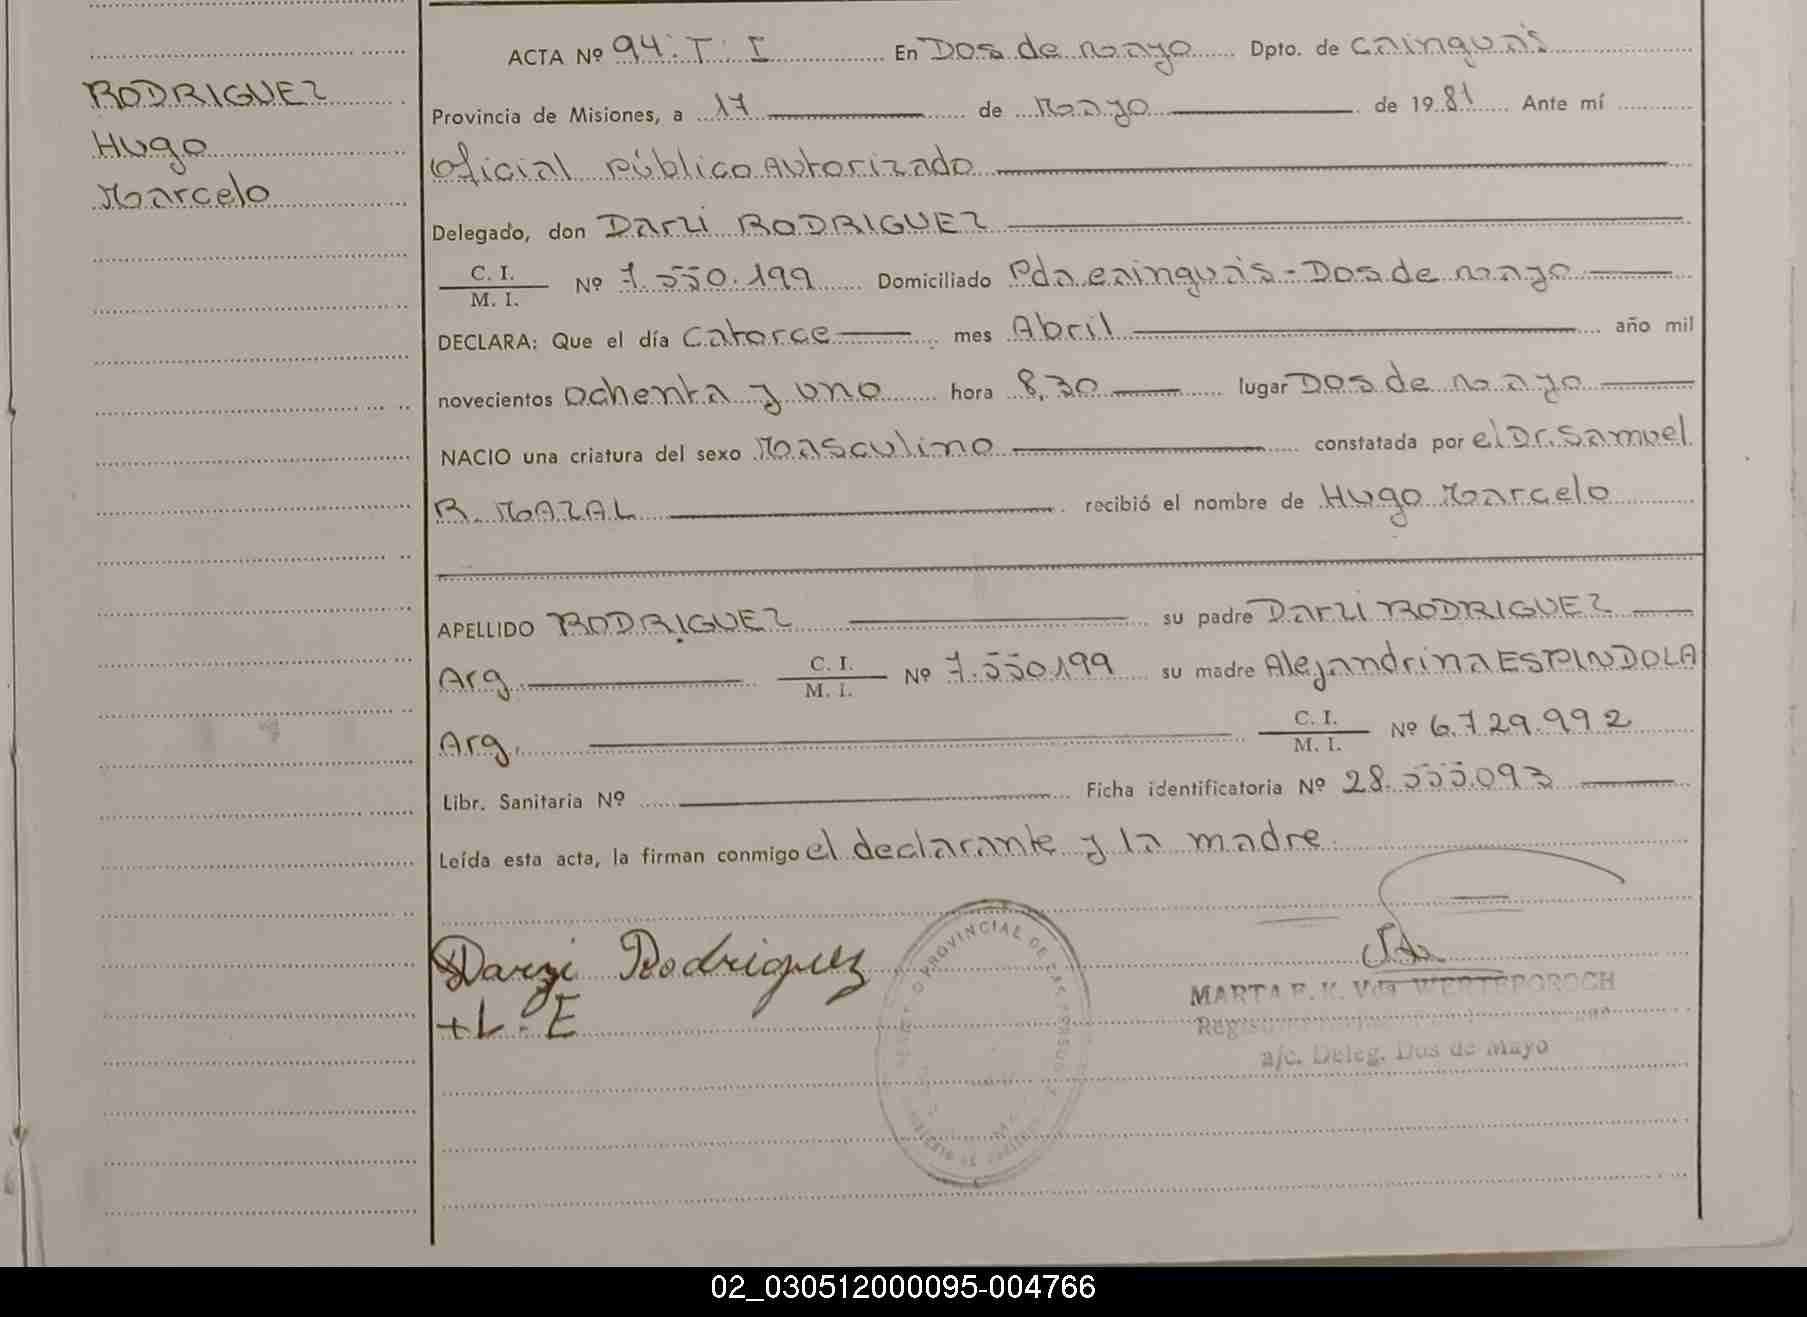 RODRIGUEZ
Hugo
Marcelo
ACTA Nº 94: T: I En Dos de mayo Dpto. de Cainguás
Provincia de Misiones, a 17 de Mayo de 1981 Ante mí
Oficial Público Autorizado
Delegado, don Darzi RODRIGUEZ
C. I.
M. I. Nº 7.550.199 Domiciliado Pda cainguás - Dos de mayo
DECLARA: Que el día Catorce mes Abril año mil
novecientos ochenta y uno hora 8,30 lugar Dos de mayo
NACIO una criatura del sexo Masculino constatada por el Dr. Samuel
R. MAZAL recibió el nombre de Hugo Marcelo
APELLIDO RODRIGUEZ su padre Darzi RODRIGUEZ
Arg. C. I.
M. I. Nº 7.550.199 su madre Alejandrina ESPINDOLA
Arg. C. I.
M. I. Nº 6.729.992
Libr. Sanitaria Nº Ficha identificatoria Nº 28.555.093
Leída esta acta, la firman conmigo el declarante y la madre.
Darzi Rodriguez
+L. E
PROVINCIAL DE LAS PERSONAS
MARTA E. K. Vda WERTEPOROCH
a/c. Deleg. Dos de Mayo
02_030512000095-004766